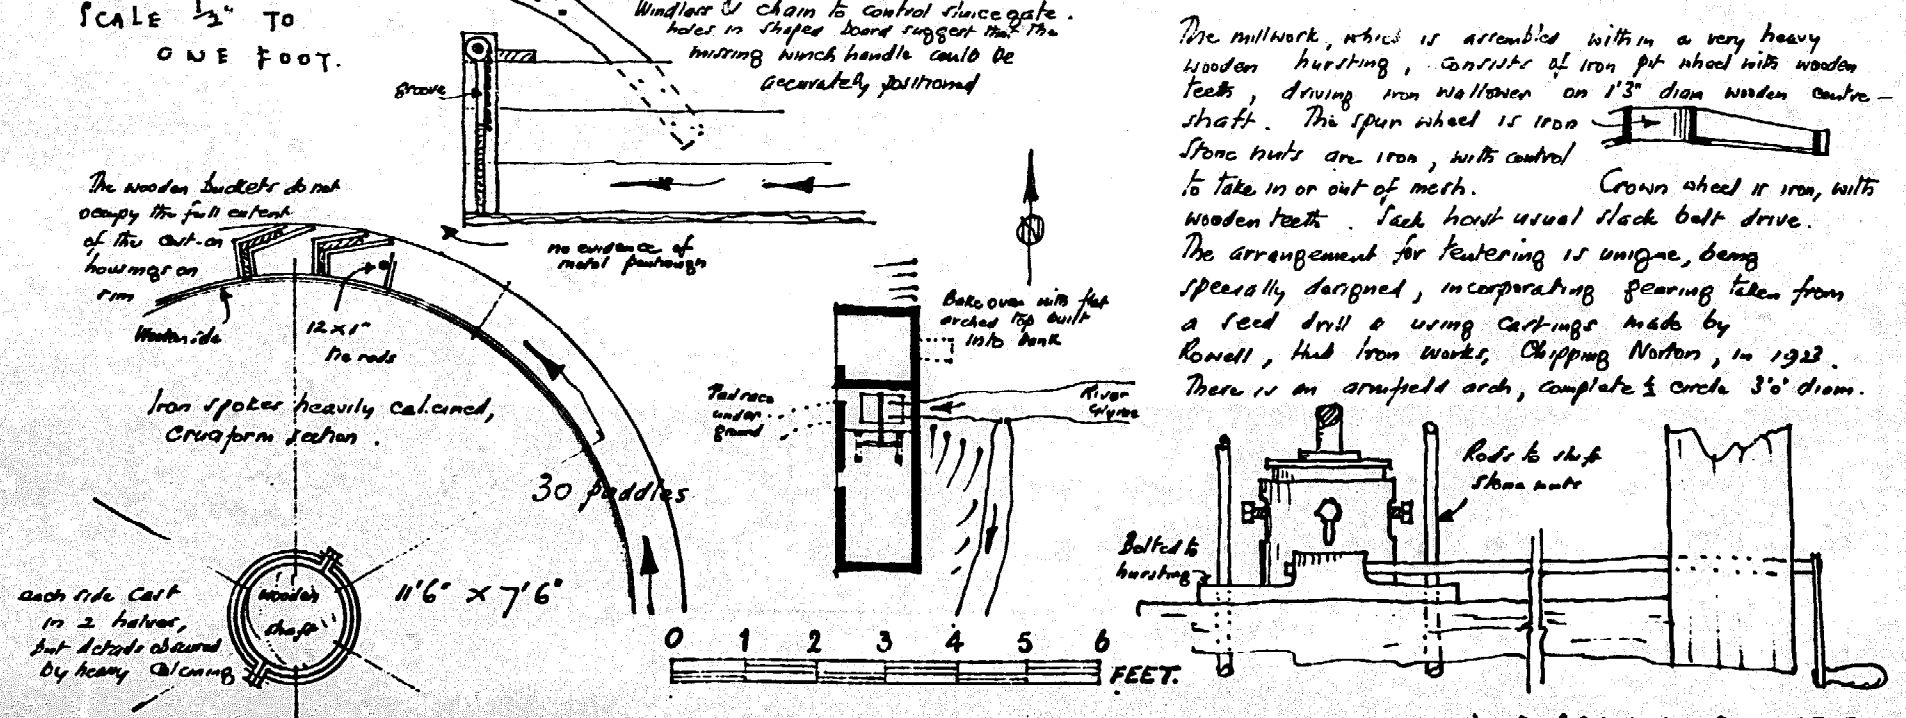 SCALE ½" TO
ONE FOOT.
Windlass & chain to control sluice gate.
holes in shaped board suggest that the
missing winch handle could be
accurately positioned
groove
The wooden buckets do not
occupy the full extent
of the cast-on
housings on
rim
no evidence of
metal pentrough
Woodenside
12 x 1"
tie rods
Iron spokes heavily calcined,
Cruciform section.
30 paddles
11'6" x 7'6"
each side cast
in 2 halves,
but details obscured
by heavy calcining
wooden
shaft
N
Bake oven with flat
arched top built
into bank
Tailrace
under
ground
River
Glyme
0 1 2 3 4 5 6
FEET.
The millwork, which is assembled within a very heavy
wooden hursting, consists of iron pit wheel with wooden
teeth, driving iron wallower on 1'3" diam wooden centre-
shaft. The spur wheel is iron
Stone nuts are iron, with control
to take in or out of mesh. Crown wheel is iron, with
wooden teeth. Sack hoist usual slack belt drive.
The arrangement for tentering is unique, being
specially designed, incorporating gearing taken from
a seed drill & using castings made by
Rowell, Hub Iron Works, Chipping Norton, in 1923.
There is an armfield arch, complete ½ circle 3'0" diam.
Rods to shift
stone nuts
Bolted to
hursting